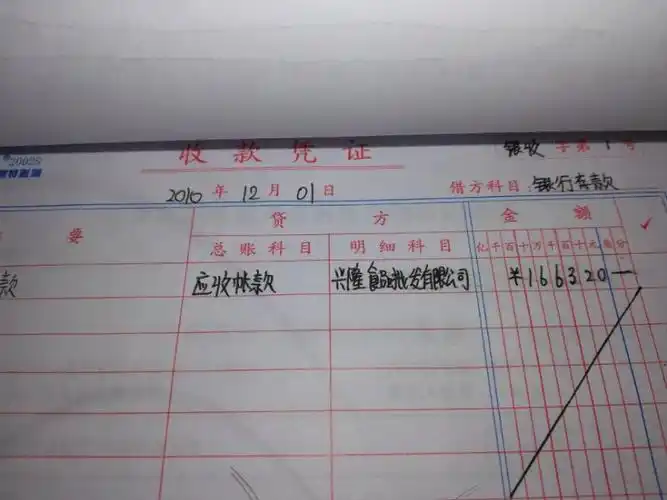 2002S
收款凭证
银收字第1号
2010年12月01日
借方科目:银行存款
要 贷方 金额 √
总账科目 明细科目 亿千百十万千百十元角分
款 应收帐款 兴隆食品批发有限公司 ¥166320—